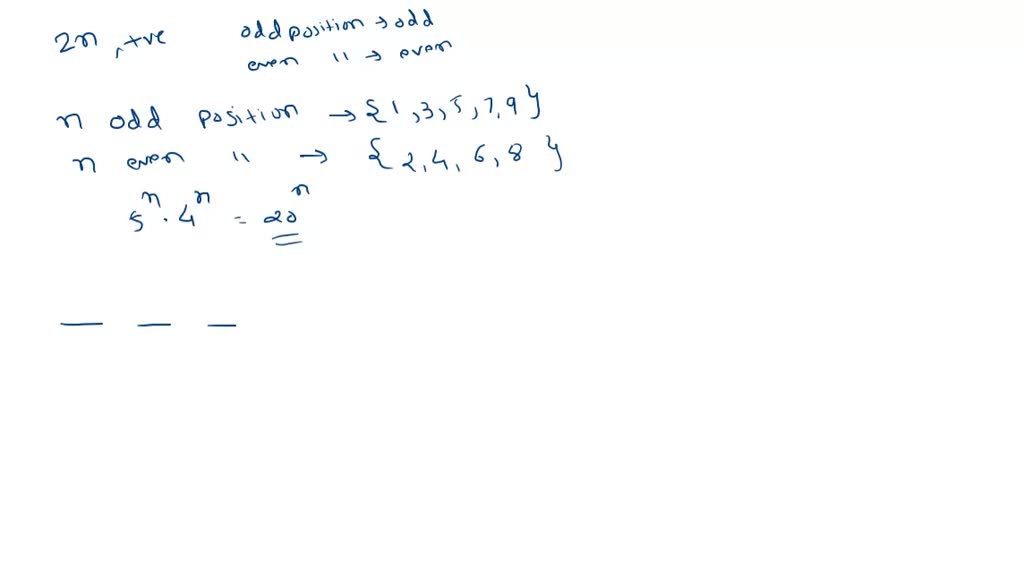 2n, +ve odd position → odd
even " → even
n odd position → {1, 3, 5, 7, 9}
n even " → {2, 4, 6, 8}
5ⁿ · 4ⁿ = 20ⁿ